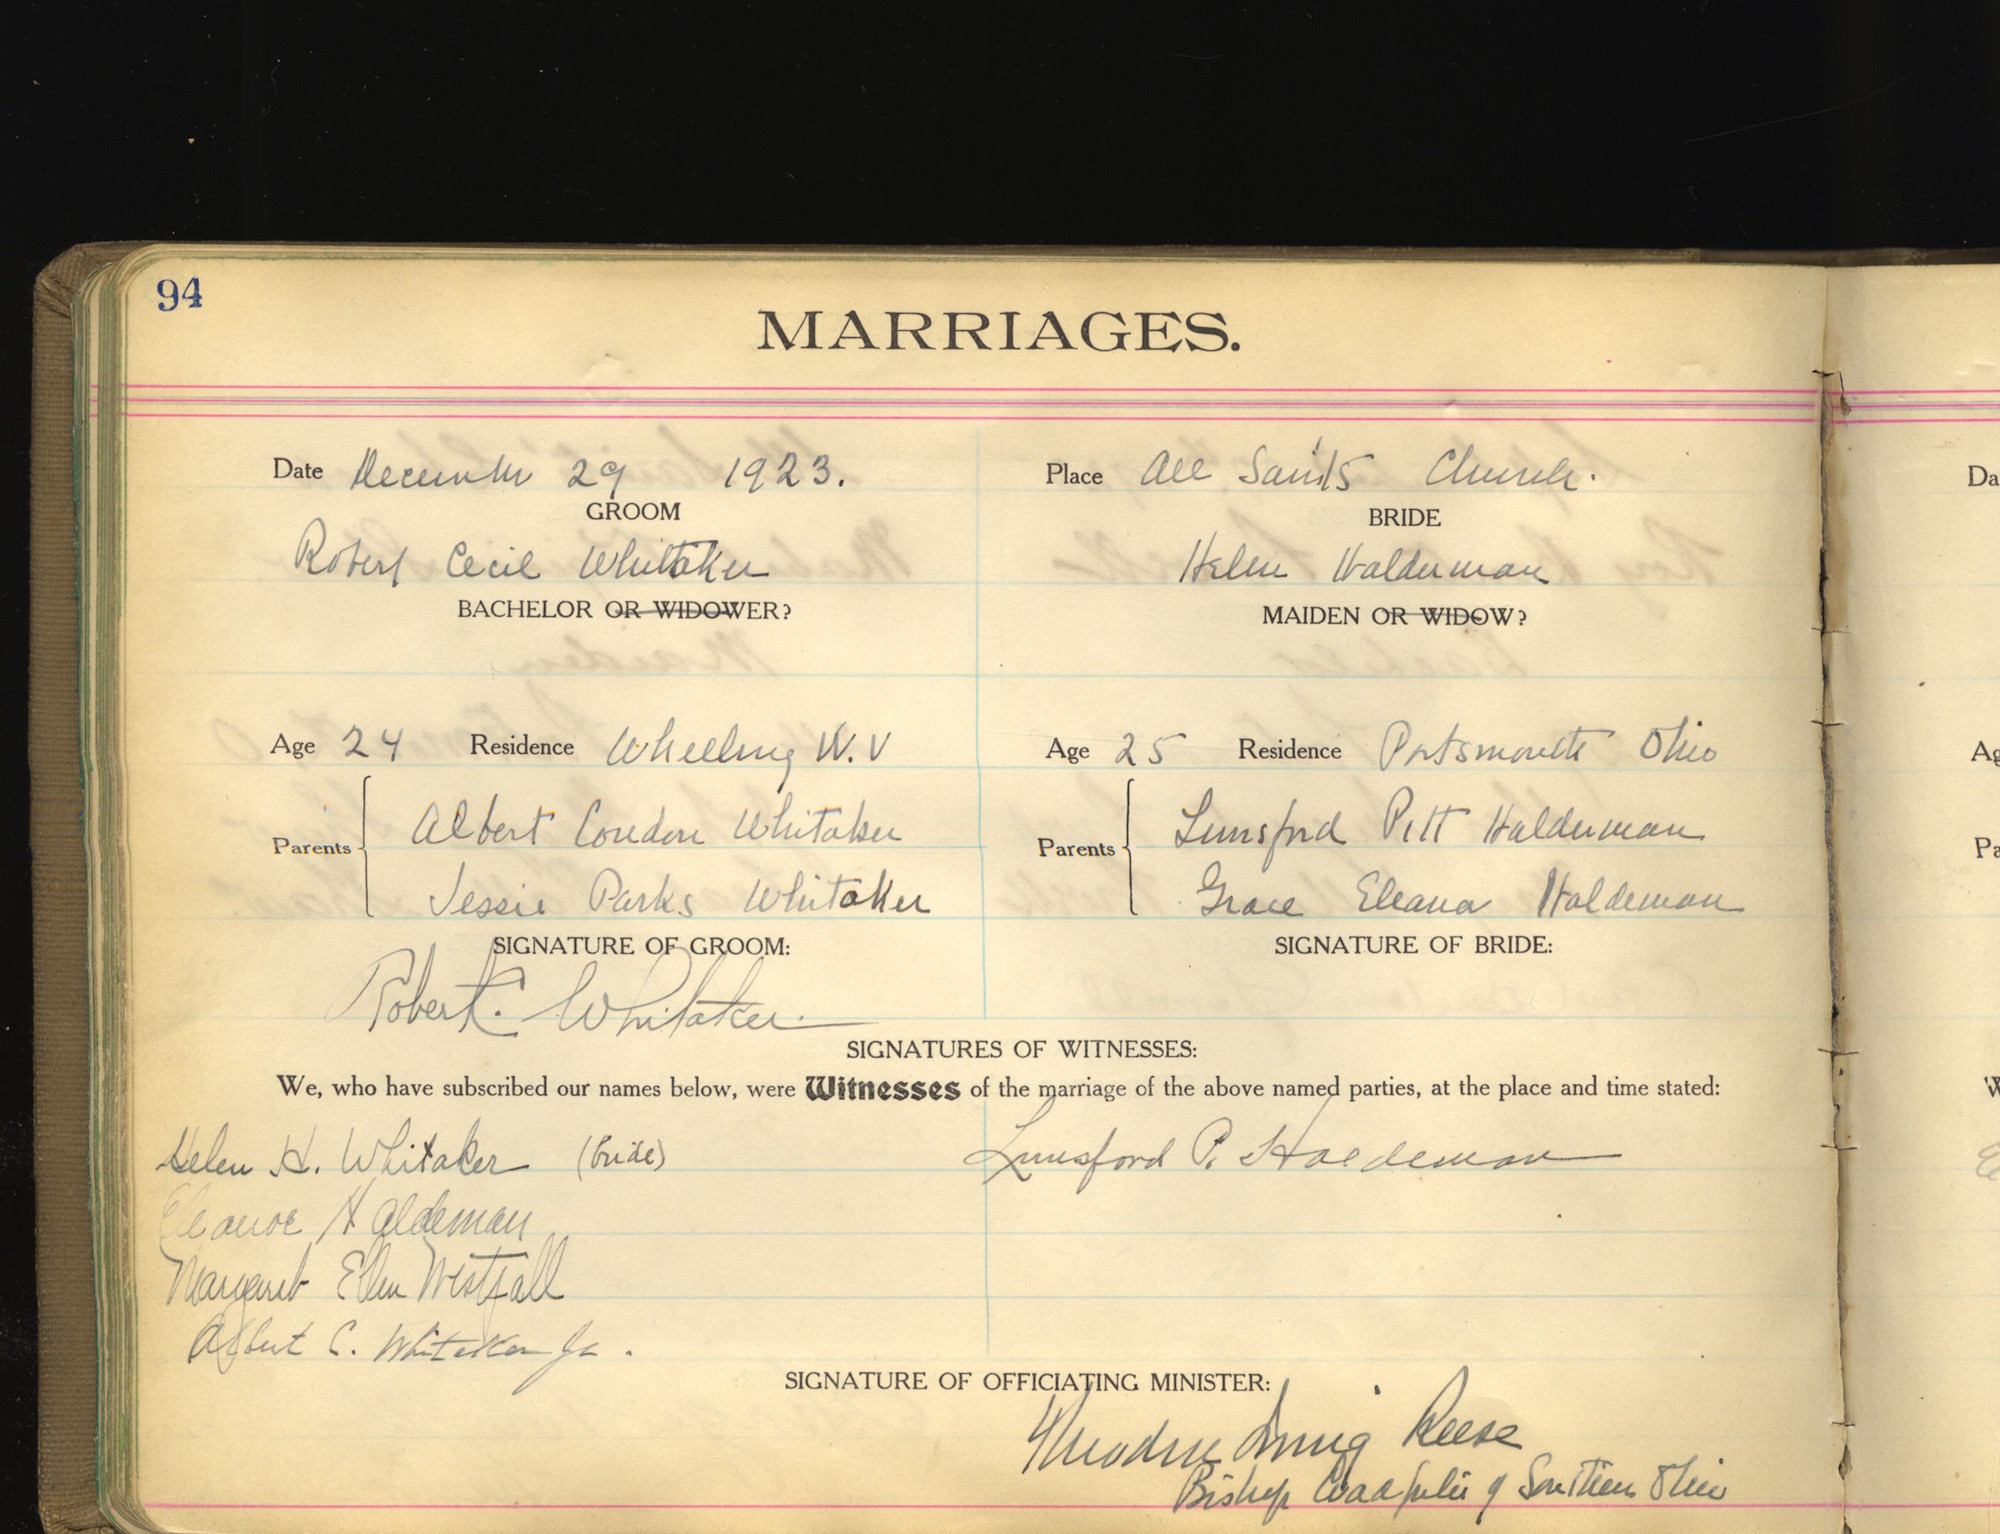 94
MARRIAGES.
Date December 29 1923.
Place All Saints Church.
GROOM
BRIDE
Robert Cecil Whittaker
Helen Halderman
BACHELOR OR WIDOWER?
MAIDEN OR WIDOW?
Age 24 Residence Wheeling W. V
Age 25 Residence Portsmouth Ohio
Parents
Albert Condon Whitaker
Jessie Parks Whitaker
Parents
Lunsford Pitt Halderman
Grace Eleana Haldeman
SIGNATURE OF GROOM:
SIGNATURE OF BRIDE:
Robert C. Whitaker.
SIGNATURES OF WITNESSES:
We, who have subscribed our names below, were Witnesses of the marriage of the above named parties, at the place and time stated:
Helen H. Whitaker (bride)
Lunsford P. Haldeman
Eleanor Haldeman
Margaret Ellen Westfall
Albert C. Whitaker Jr.
SIGNATURE OF OFFICIATING MINISTER:
Theodore Irving Reese
Bishop Coadjutor of Southern Ohio
Da
Ag
Pa
W